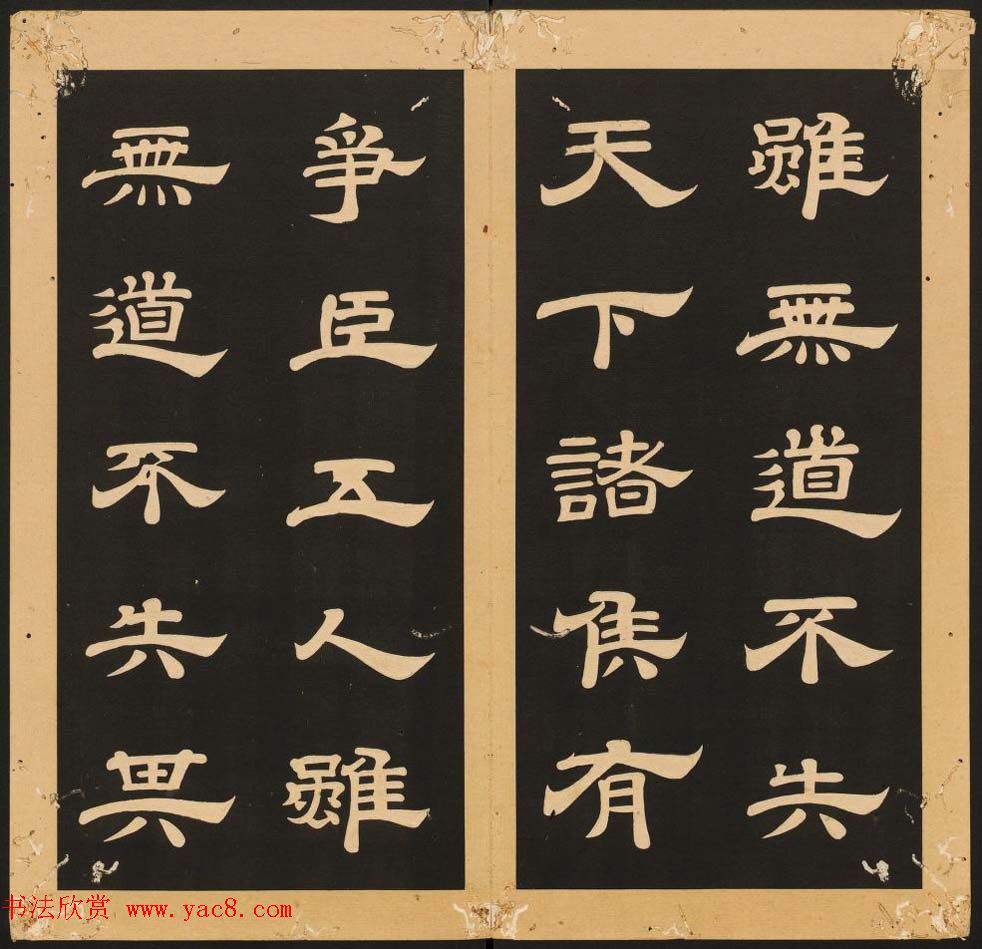 雖無道不失
天下諸侯有
爭臣五人雖
無道不失其
书法欣赏 www.yac8.com